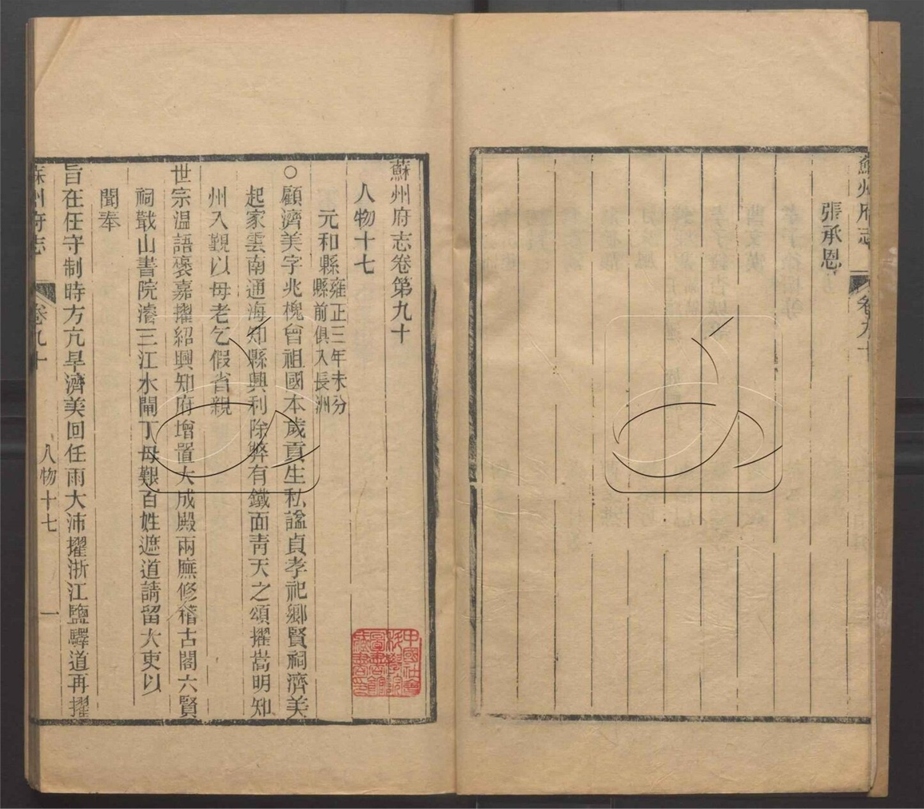 蘇州府志
卷九十
張承恩
蘇州府志卷第九十
人物十七
元和縣雍正三年未分
縣前俱入長洲
○顧濟美字兆槐曾祖國本歲貢生私諡貞孝祀鄉賢祠濟美
起家雲南通海知縣興利除弊有鐵面青天之頌擢嵩明知
州入覲以母老乞假省親
世宗溫語褒嘉擢紹興知府增置大成殿兩廡修稽古閣六賢
祠戢山書院濬三江水閘丁母艱百姓遮道請留大吏以
聞奉
旨在任守制時方亢旱濟美回任雨大沛擢浙江鹽驛道再擢
蘇州府志
卷九十
人物十七
一